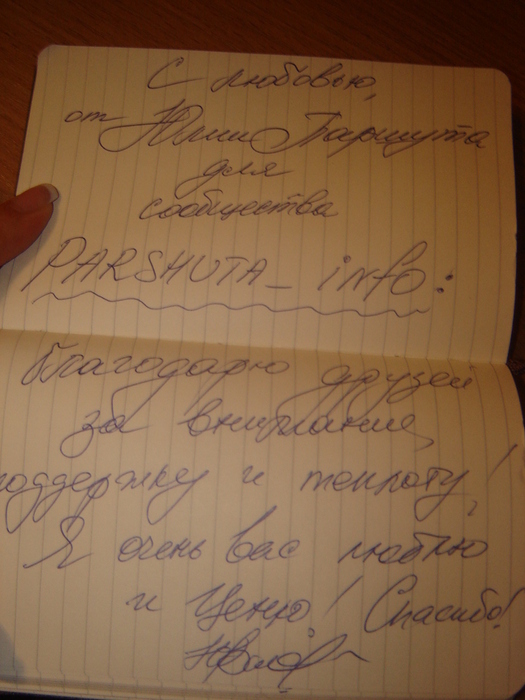 С любовью,
от Юлии Паршута
для
сообщества
PARSHUTA_info:
Благодарю друзей
за внимание,
поддержку и теплоту!
Я очень вас люблю
и ценю! Спасибо!